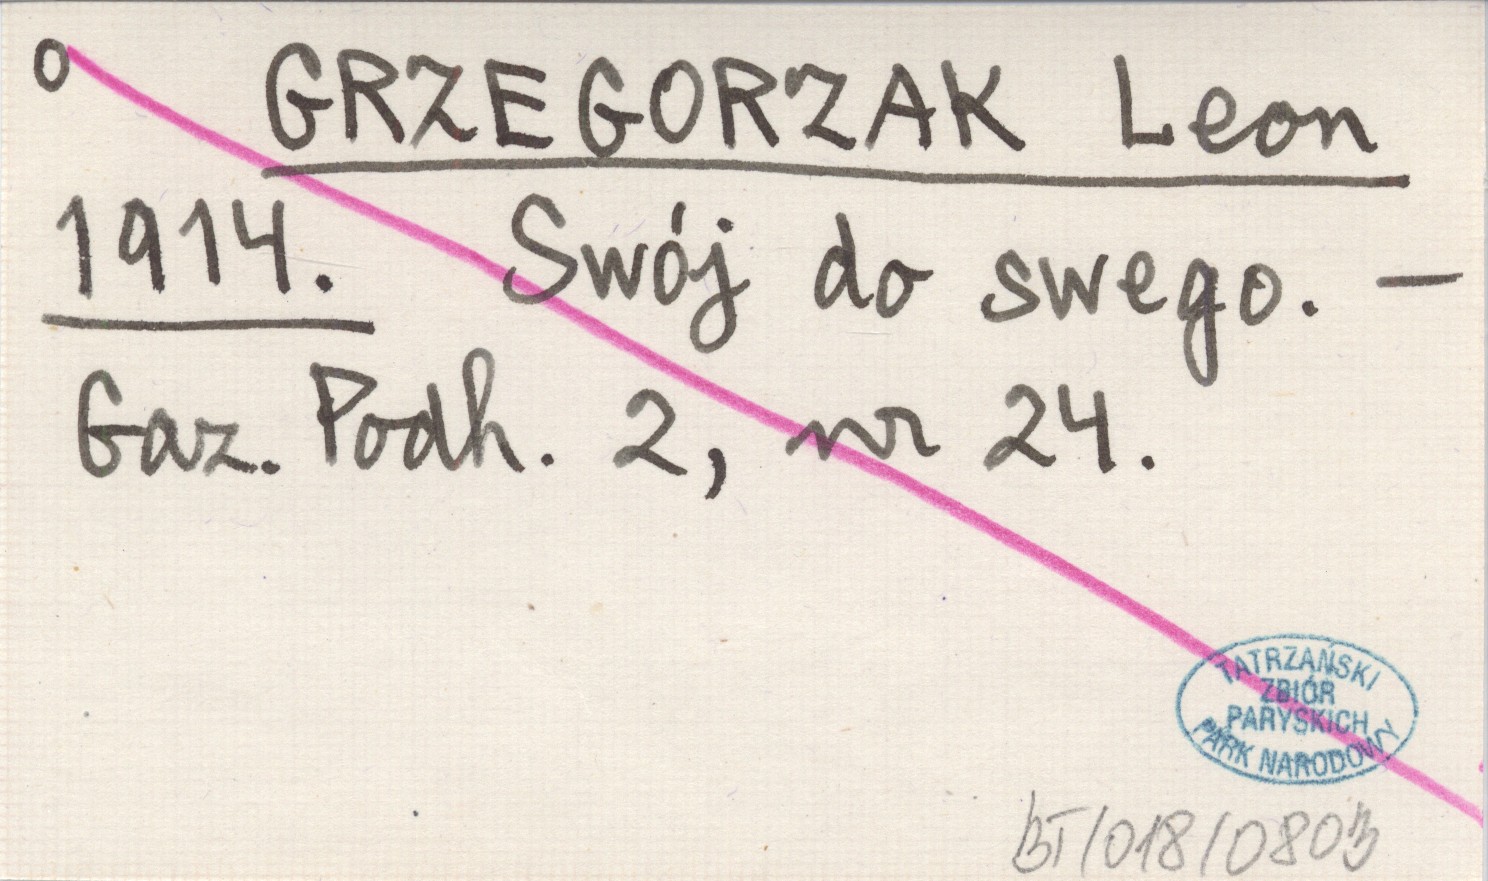 o GRZEGORZAK Leon
1914. Swój do swego. —
Gaz. Podh. 2, nr 24.
TATRZAŃSKI
ZBIÓR
PARYSKICH
PARK NARODOWY
BT/018/0803